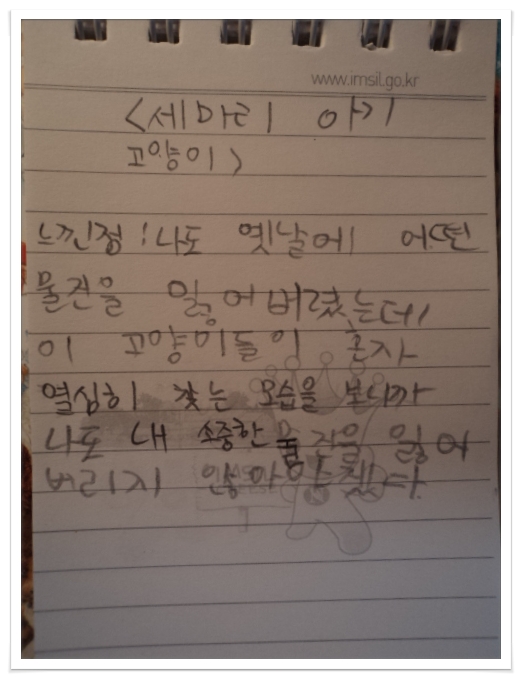 www.imsil.go.kr
<세마리 아기
고양이>
느낀점 : 나도 옛날에 어떤
물건을 잃어버렸는데
이 고양이들이 혼자
열심히 찾는 모습을 보니까
나도 내 소중한 물건을 잃어
버리지 않아야겠다.